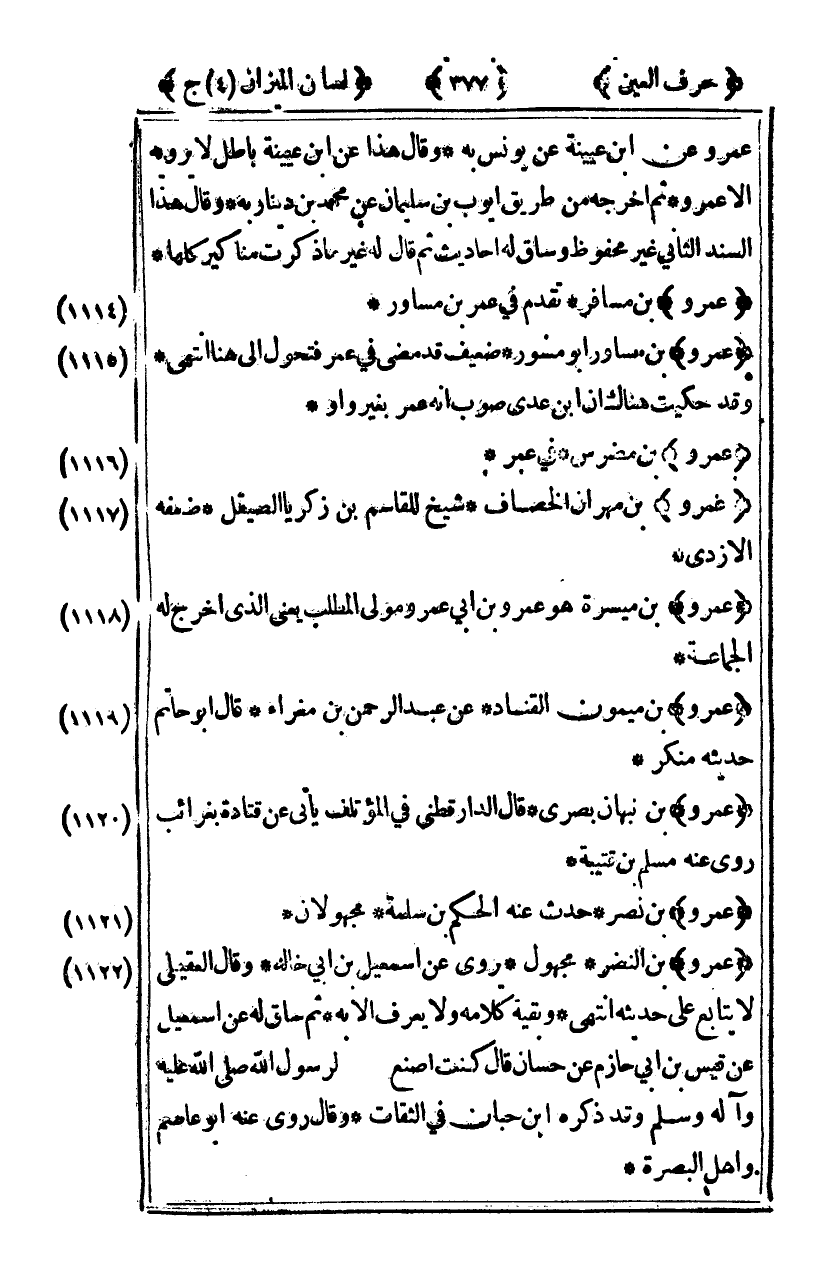 ﴿ حرف العين ﴾ ﴿ ٣٧٧ ﴾ ﴿ لسان الميزان (٤) ج ﴾
عمرو عن ابن عيينة عن يونس به * وقال هذا عن ابن عيينة باطل لا يروه
الا عمرو * ثم اخرجه من طريق ايوب بن سليمان عن محمد بن دينار به * وقال هذا
السند الثاني غير محفوظ وساق له احاديث ثم قال له غير ماذكرت مناكير كلها *
﴿ عمرو ﴾ بن مسافر * تقدم في عمر بن مساور * (١١١٤)
﴿ عمرو ﴾ بن مساور ابو مسور * ضعيف قد مضى في عمر فتحول الى هنا انتهى * (١١١٥)
وقد حكيت هنالك ان ابن عدى صوب انه عمر بغير واو *
﴿ عمرو ﴾ بن مضرس * في عمر * (١١١٦)
﴿ عمرو ﴾ بن مهران الخصاف * شيخ للقاسم بن زكريا الصيقل * ضعفه (١١١٧)
الازدى *
﴿ عمرو ﴾ بن ميسرة هو عمرو بن ابي عمرو مولى المطلب يعنى الذى اخرج له (١١١٨)
الجماعة *
﴿ عمرو ﴾ بن ميمون القناد * عن عبد الرحمن بن مغراء * قال ابو حاتم (١١١٩)
حديثه منكر *
﴿ عمرو ﴾ بن نبهان بصرى * قال الدارقطني في المؤتلف يأتى عن قتادة بغرائب (١١٢٠)
روى عنه مسلم بن قتيبة *
﴿ عمرو ﴾ بن نصر * حدث عنه الحكم بن سلمة * مجهولان * (١١٢١)
﴿ عمرو ﴾ بن النضر * مجهول * روى عن اسمعيل بن ابي خالد * وقال العقيلى (١١٢٢)
لا يتابع على حديثه انتهى * وبقية كلامه ولا يعرف الا به * ثم ساق له عن اسمعيل
عن قيس بن ابي حازم عن حسان قال كنت اصنع لرسول الله صلى الله عليه
وآله وسلم وقد ذكره ابن حبان في الثقات * وقال روى عنه ابو عاصم
واهل البصرة *